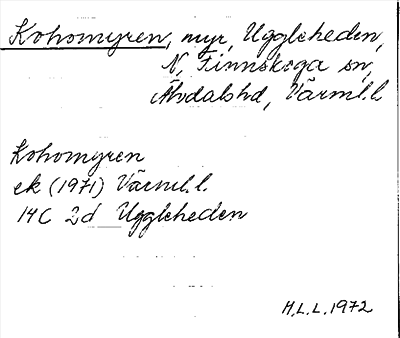 Kohomyren, myr, Uggleheden,
N, Finnskoga sn,
Älvdals hd, Värml.l.
Kohomyren
ek (1971) Värml.l.
14C 2d Uggleheden
H.L.L. 1972